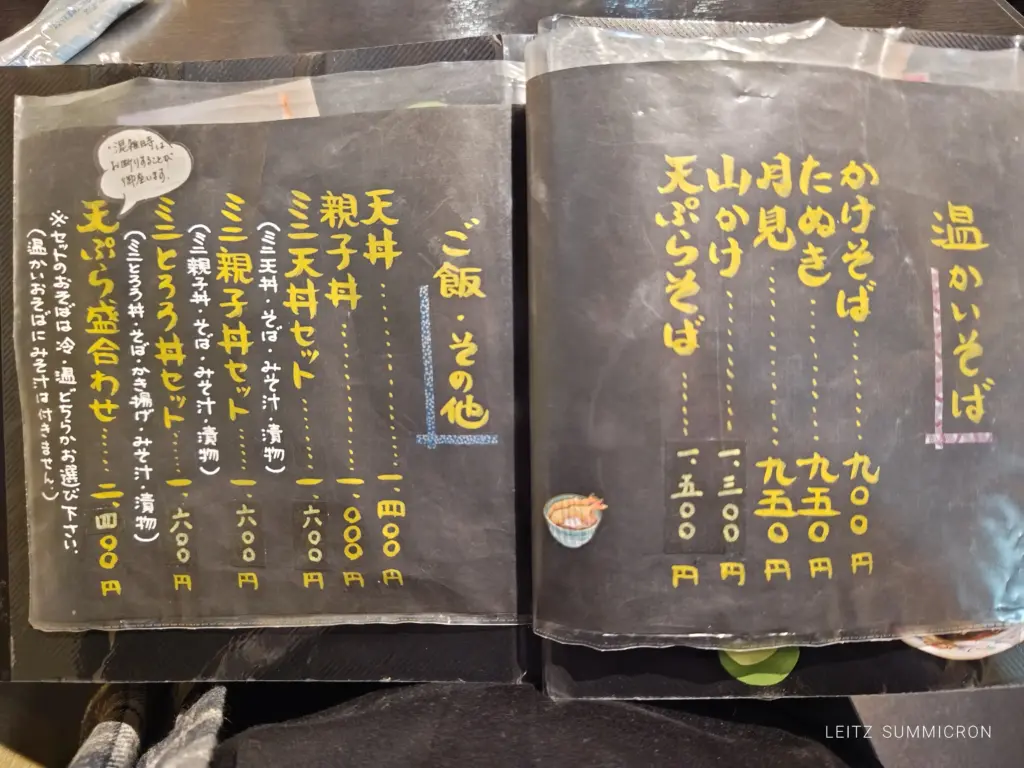 温かいそば
かけそば……九〇〇円
たぬき……九五〇円
月見……九五〇円
山かけ……一、三〇〇円
天ぷらそば……一、五〇〇円
ご飯・その他
天丼……一、四〇〇円
親子丼……一、〇〇〇円
ミニ天丼セット……一、六〇〇円
(ミニ天丼・そば・みそ汁・漬物)
ミニ親子丼セット……一、六〇〇円
(ミニ親子丼・そば・みそ汁・漬物)
ミニとろろ丼セット……一、六〇〇円
(ミニとろろ丼・そば・かき揚げ・みそ汁・漬物)
・混雑時等は
お断りすることが
御座います。
天ぷら盛合わせ……二、四〇〇円
※セットのおそばは冷、温どちらかお選び下さい。
(温かいおそばにみそ汁は付きません。)
LEITZ SUMMICRON